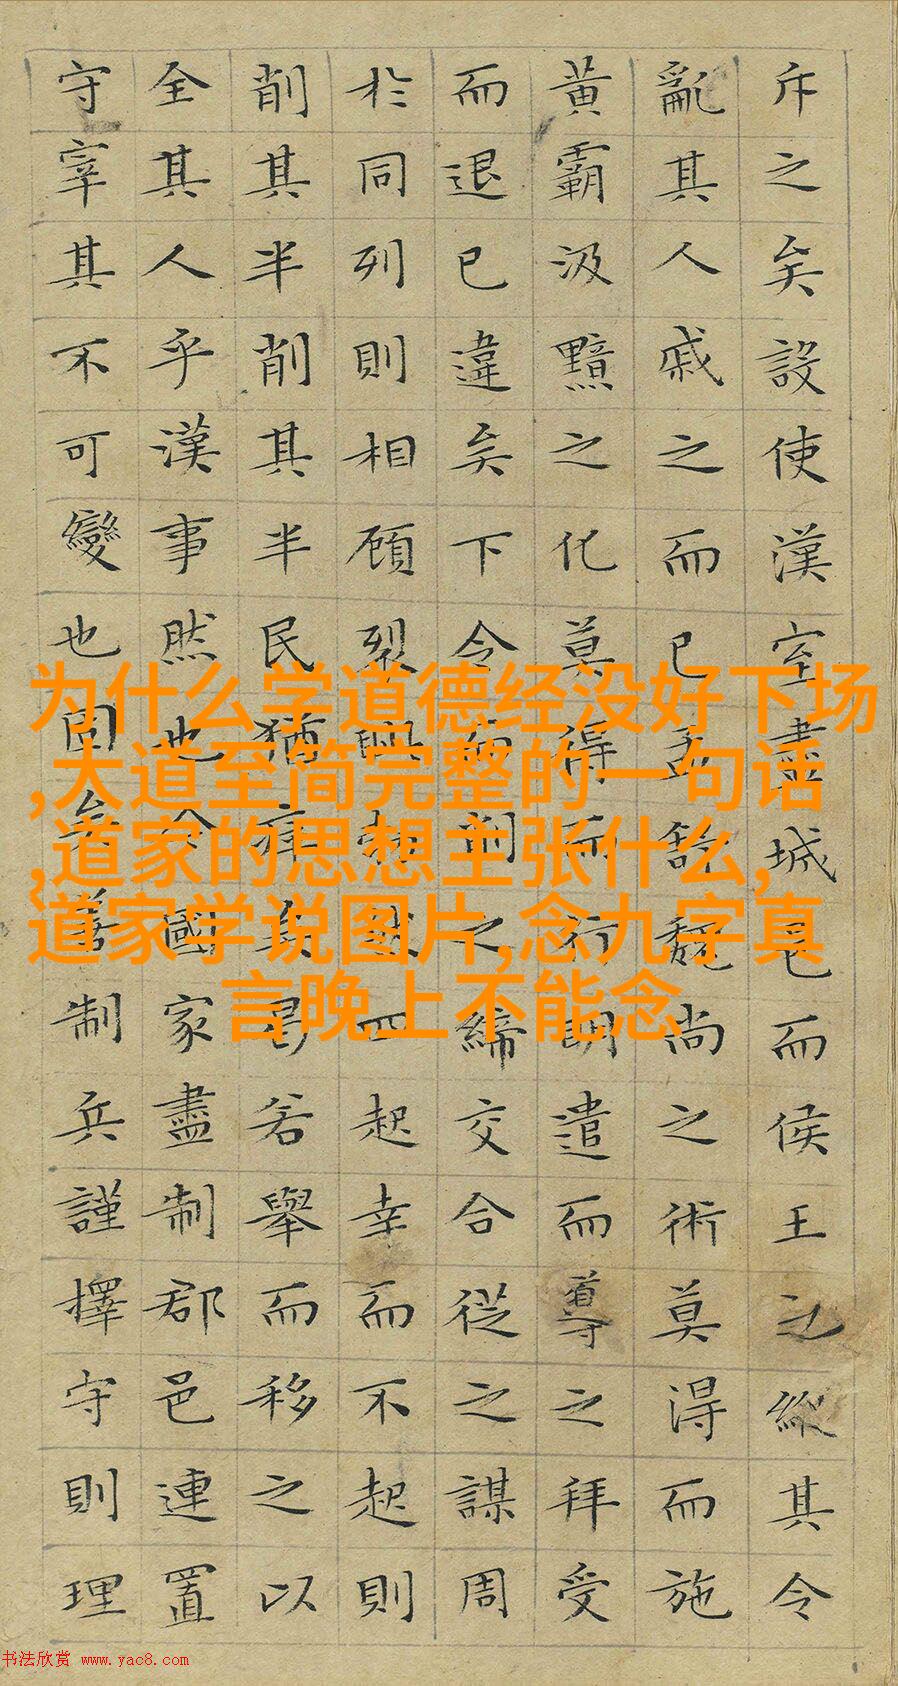 斥之矣設使漢室盡城邑而侯王之縱其令
亂其人戚之而已孟舒魏尚之術莫得而施
黃霸汲黯之化莫得而行明遣而導之拜受
而退已違矣下令而削之締交合從之謀周
於同列則相顧裂眥勃然四起幸而不起則
削其半削其半民猶瘁矣曷若舉而移之以
全其人乎漢事然也今國家盡制郡邑連置
守宰其不可變也固矣善制兵謹擇守則理
为什么学道德经没好下场
,大道至简完整的一句话
,道家的思想主张什么,
道家学说图片,念九字真
言晚上不能念
书法欣赏 www.yac8.com